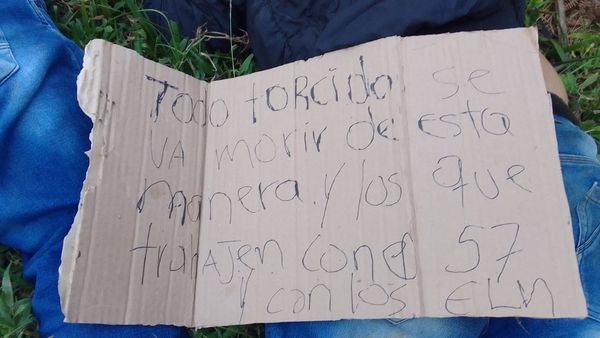 Todo torcido se
va morir de esta
manera. y los que
trabajen con el 57
y con los ELN